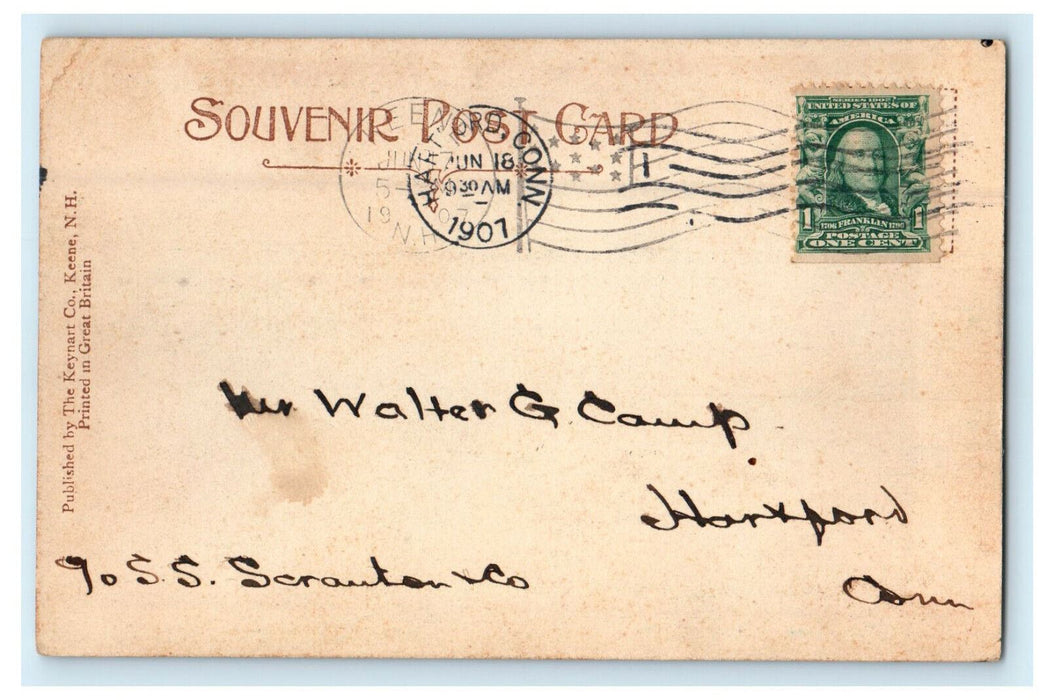 SOUVENIR POST CARD
HARTFORD, CONN
JUN 18
9 30 AM
1907
N.H.
1
SERIES 1902
UNITED STATES OF
AMERICA
1706 FRANKLIN 1790
POSTAGE
1 ONE CENT 1
Published by The Keynart Co., Keene, N. H.
Printed in Great Britain
Mr Walter G Camp.
Hartford
c/o S. S. Scranton & Co
Conn